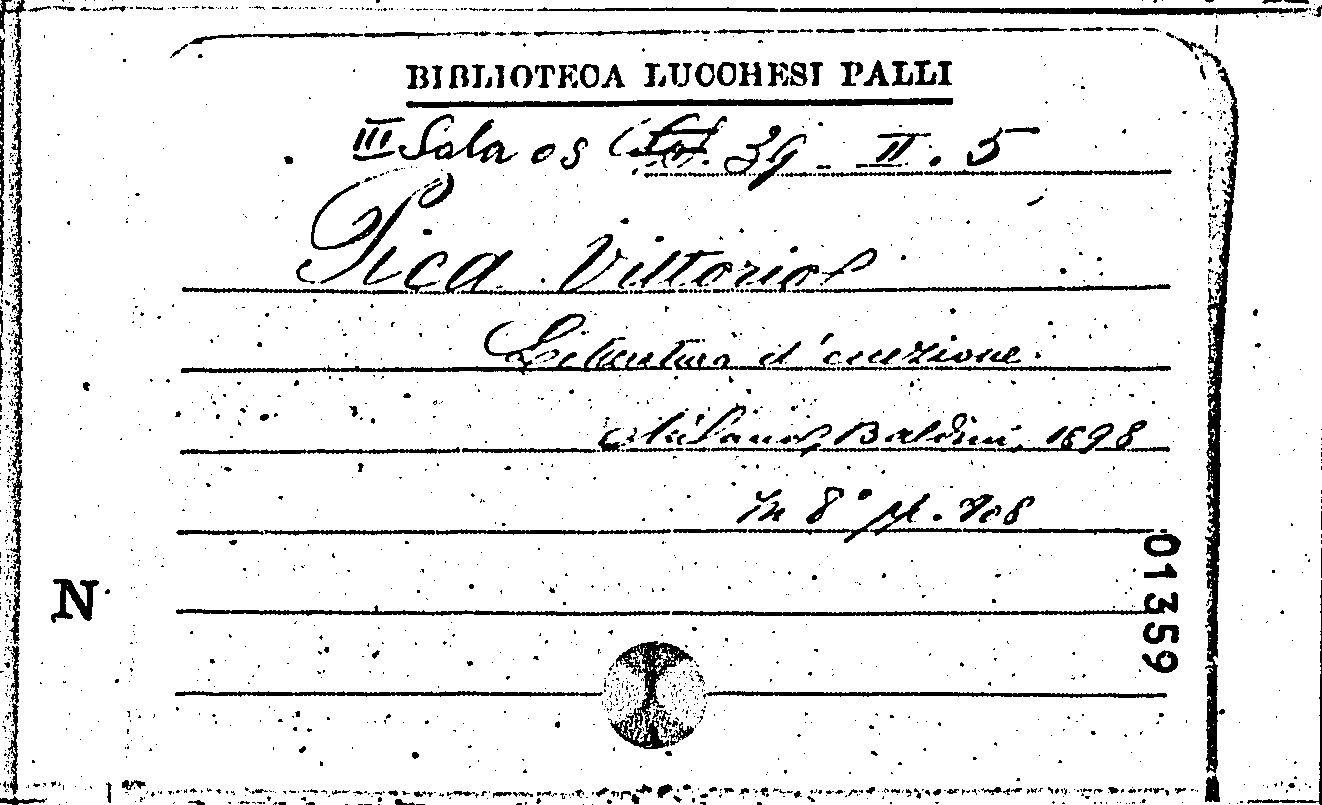 BIBLIOTECA LUCCHESI PALLI
III Sala 39 - II. 5
Pica Vittorio
Letteratura d'eccezione.
Milano, Baldini, 1898
In 8° pp.
N
01359